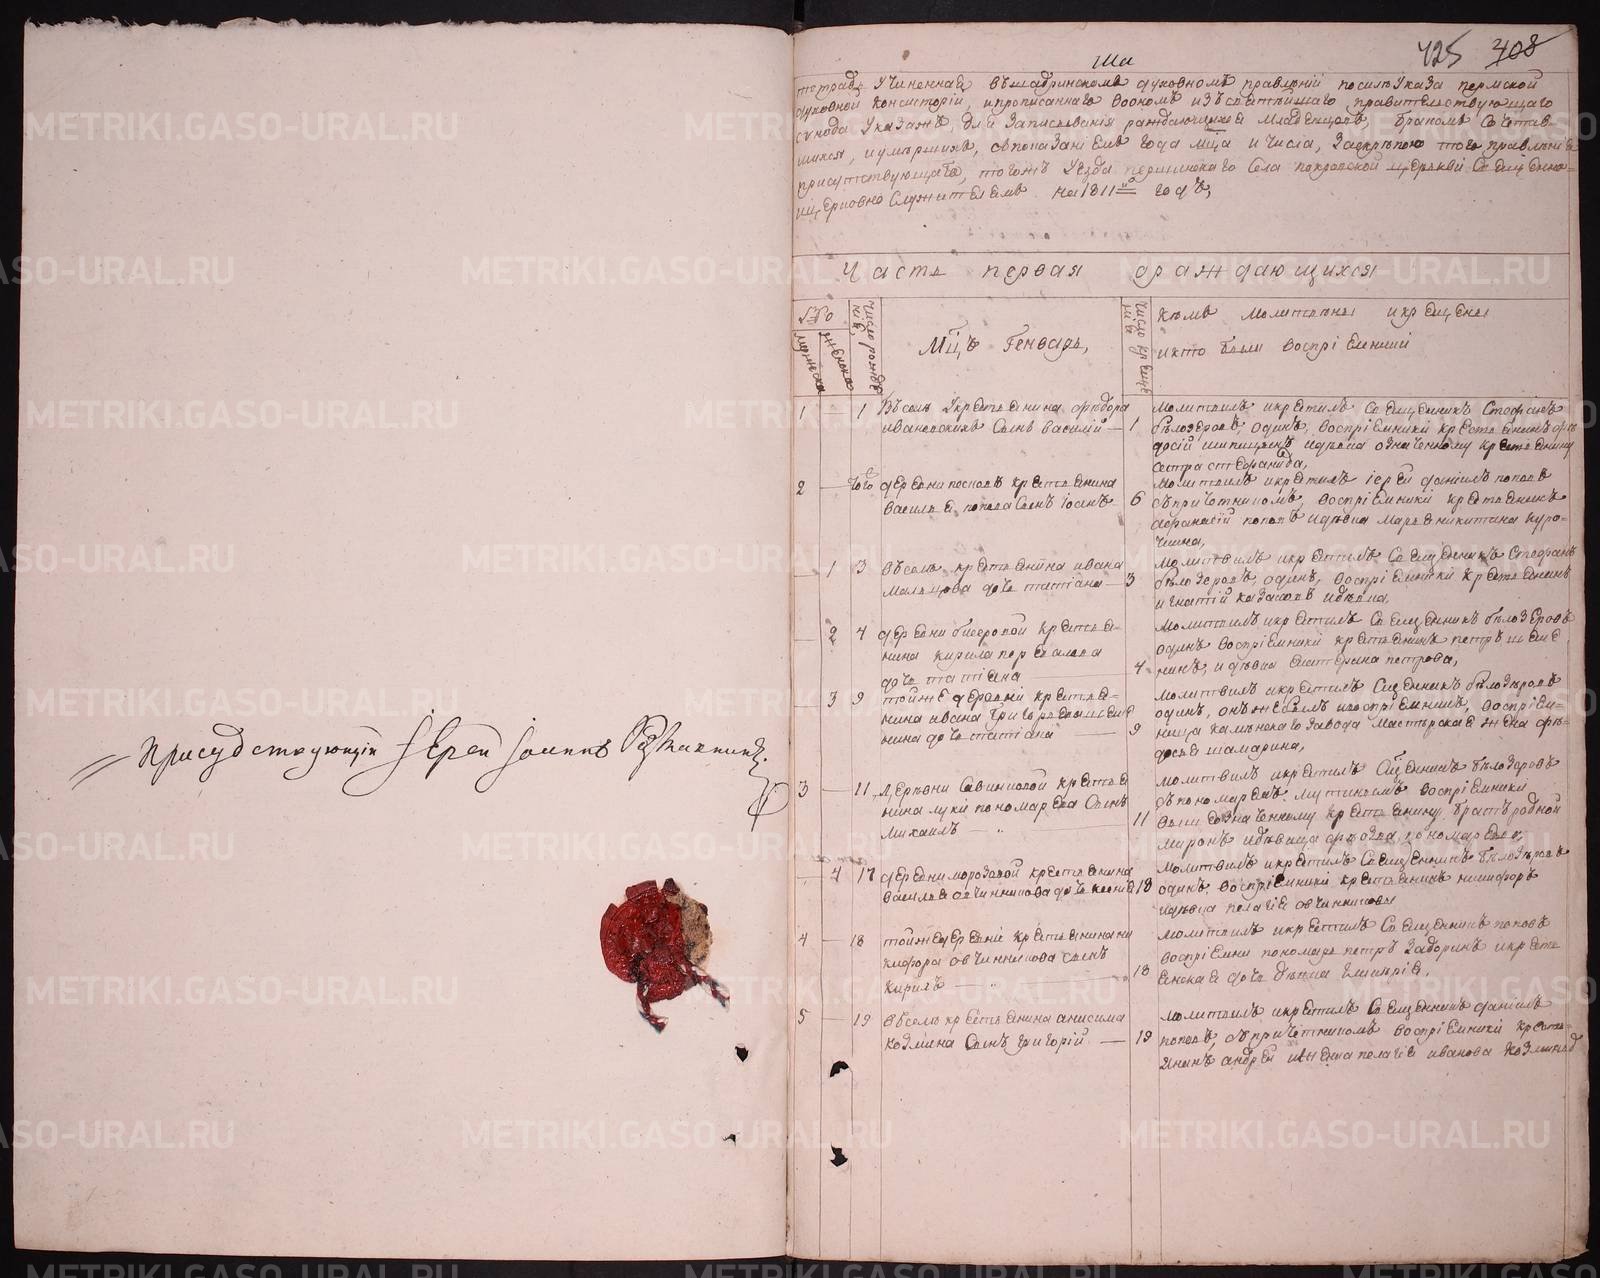 Присудствующій Іерей Іоаннъ
425 408
тетрадь Учиненная въ шадринскомъ духовномъ правленіи посилъ Указа пермской
духовной Консисторіи, ипрописаннаго вономъ изъ святѣйшаго правительствующаго
сvнода Указахъ, для Записыванія раждающихся младенцовъ, бракомъ Сочетав-
шихся, иумершихъ, споказаніемъ года мца и числа, Закрѣпою того правленія
присутствующаго, тогожъ Уезда першинскаго Села покровской церькви Священно-
ицерковно Служителемъ на 1811й годъ,
Часть первая ораждающихся
Число рожде
ній
Мцъ Генварь,
Кѣмъ молитвены и крещены
икто были воспріемники
мужеска
женска
1 — 1 Въ селѣ У крестьянина федора
ивановскихъ Сынъ василий — 1
молитвилъ икрестилъ Священникъ Стефанъ
бѣлозеровъ, одинъ, воспріемники крестьянинъ
досій шипицынъ идѣвка означенному крестьянину
сестра стефанида,
2 — деревни поповъ крестьянина
василья попова Сынъ Іоанъ 6
молитвилъ икрестилъ іерей даніилъ поповъ
съпричетникомъ, воспріемники крестьянинъ
афанасій поповъ идѣвка марья никитина куро-
чкина,
— 1 3 Въ селѣ крестьянина ивана
мальцова дочь татіана — 3
молитвилъ икрестилъ Священникъ Стефанъ
бѣлозеровъ, одинъ, воспріемники крестьянинъ
игнатій казаковъ
— 2 4 деревни бисеровой крестья-
нина кирила перевалова
дочь татіана — 4
молитвилъ икрестилъ Священникъ бѣлозеровъ
одинъ воспріемники крестьянинъ петръ
идѣвка екатерина петрова,
— 3 9 тойже деревни крестья-
нина ивана григорьева
нина дочь татіана — 9
молитвилъ икрестилъ Сщенникъ бѣлозеровъ
одинъ, онъ же былъ ивоспріемникъ, воспріем-
ница каменскаго завода мастерская жена
досья шамарина,
3 — 11 деревни Савинской крестья
нина луки пономарева Сынъ
михаилъ — 11
молитвилъ икрестилъ Сщенникъ бѣлозеровъ
съ пономаремъ воспріемники
были означенному крестьянину братъ родной
миронъ идѣвица федосья пономарева,
— 4 17 деревни морозовой крестьянина
василья овчинникова дочь ксенія 18
молитвилъ икрестилъ Священникъ бѣлозеровъ
одинъ, воспріемники крестьянинъ никифоръ
идѣвка пелагія овчинниковы
4 — 18 тойже деревни крестьянина ни
кифора овчинникова сынъ
кирилъ — 18
молитвилъ икрестилъ Священникъ поповъ
воспріемни пономарь петръ Задоринъ икресть
янская дочь дѣвка
5 — 19 Въ селѣ крестьянина анисима
козмина Сынъ григорій — 19
молитвилъ икрестилъ Священникъ даніилъ
поповъ, съпричетникомъ воспріемники кресть-
янинъ андрей и пелагія иванова козминыхъ